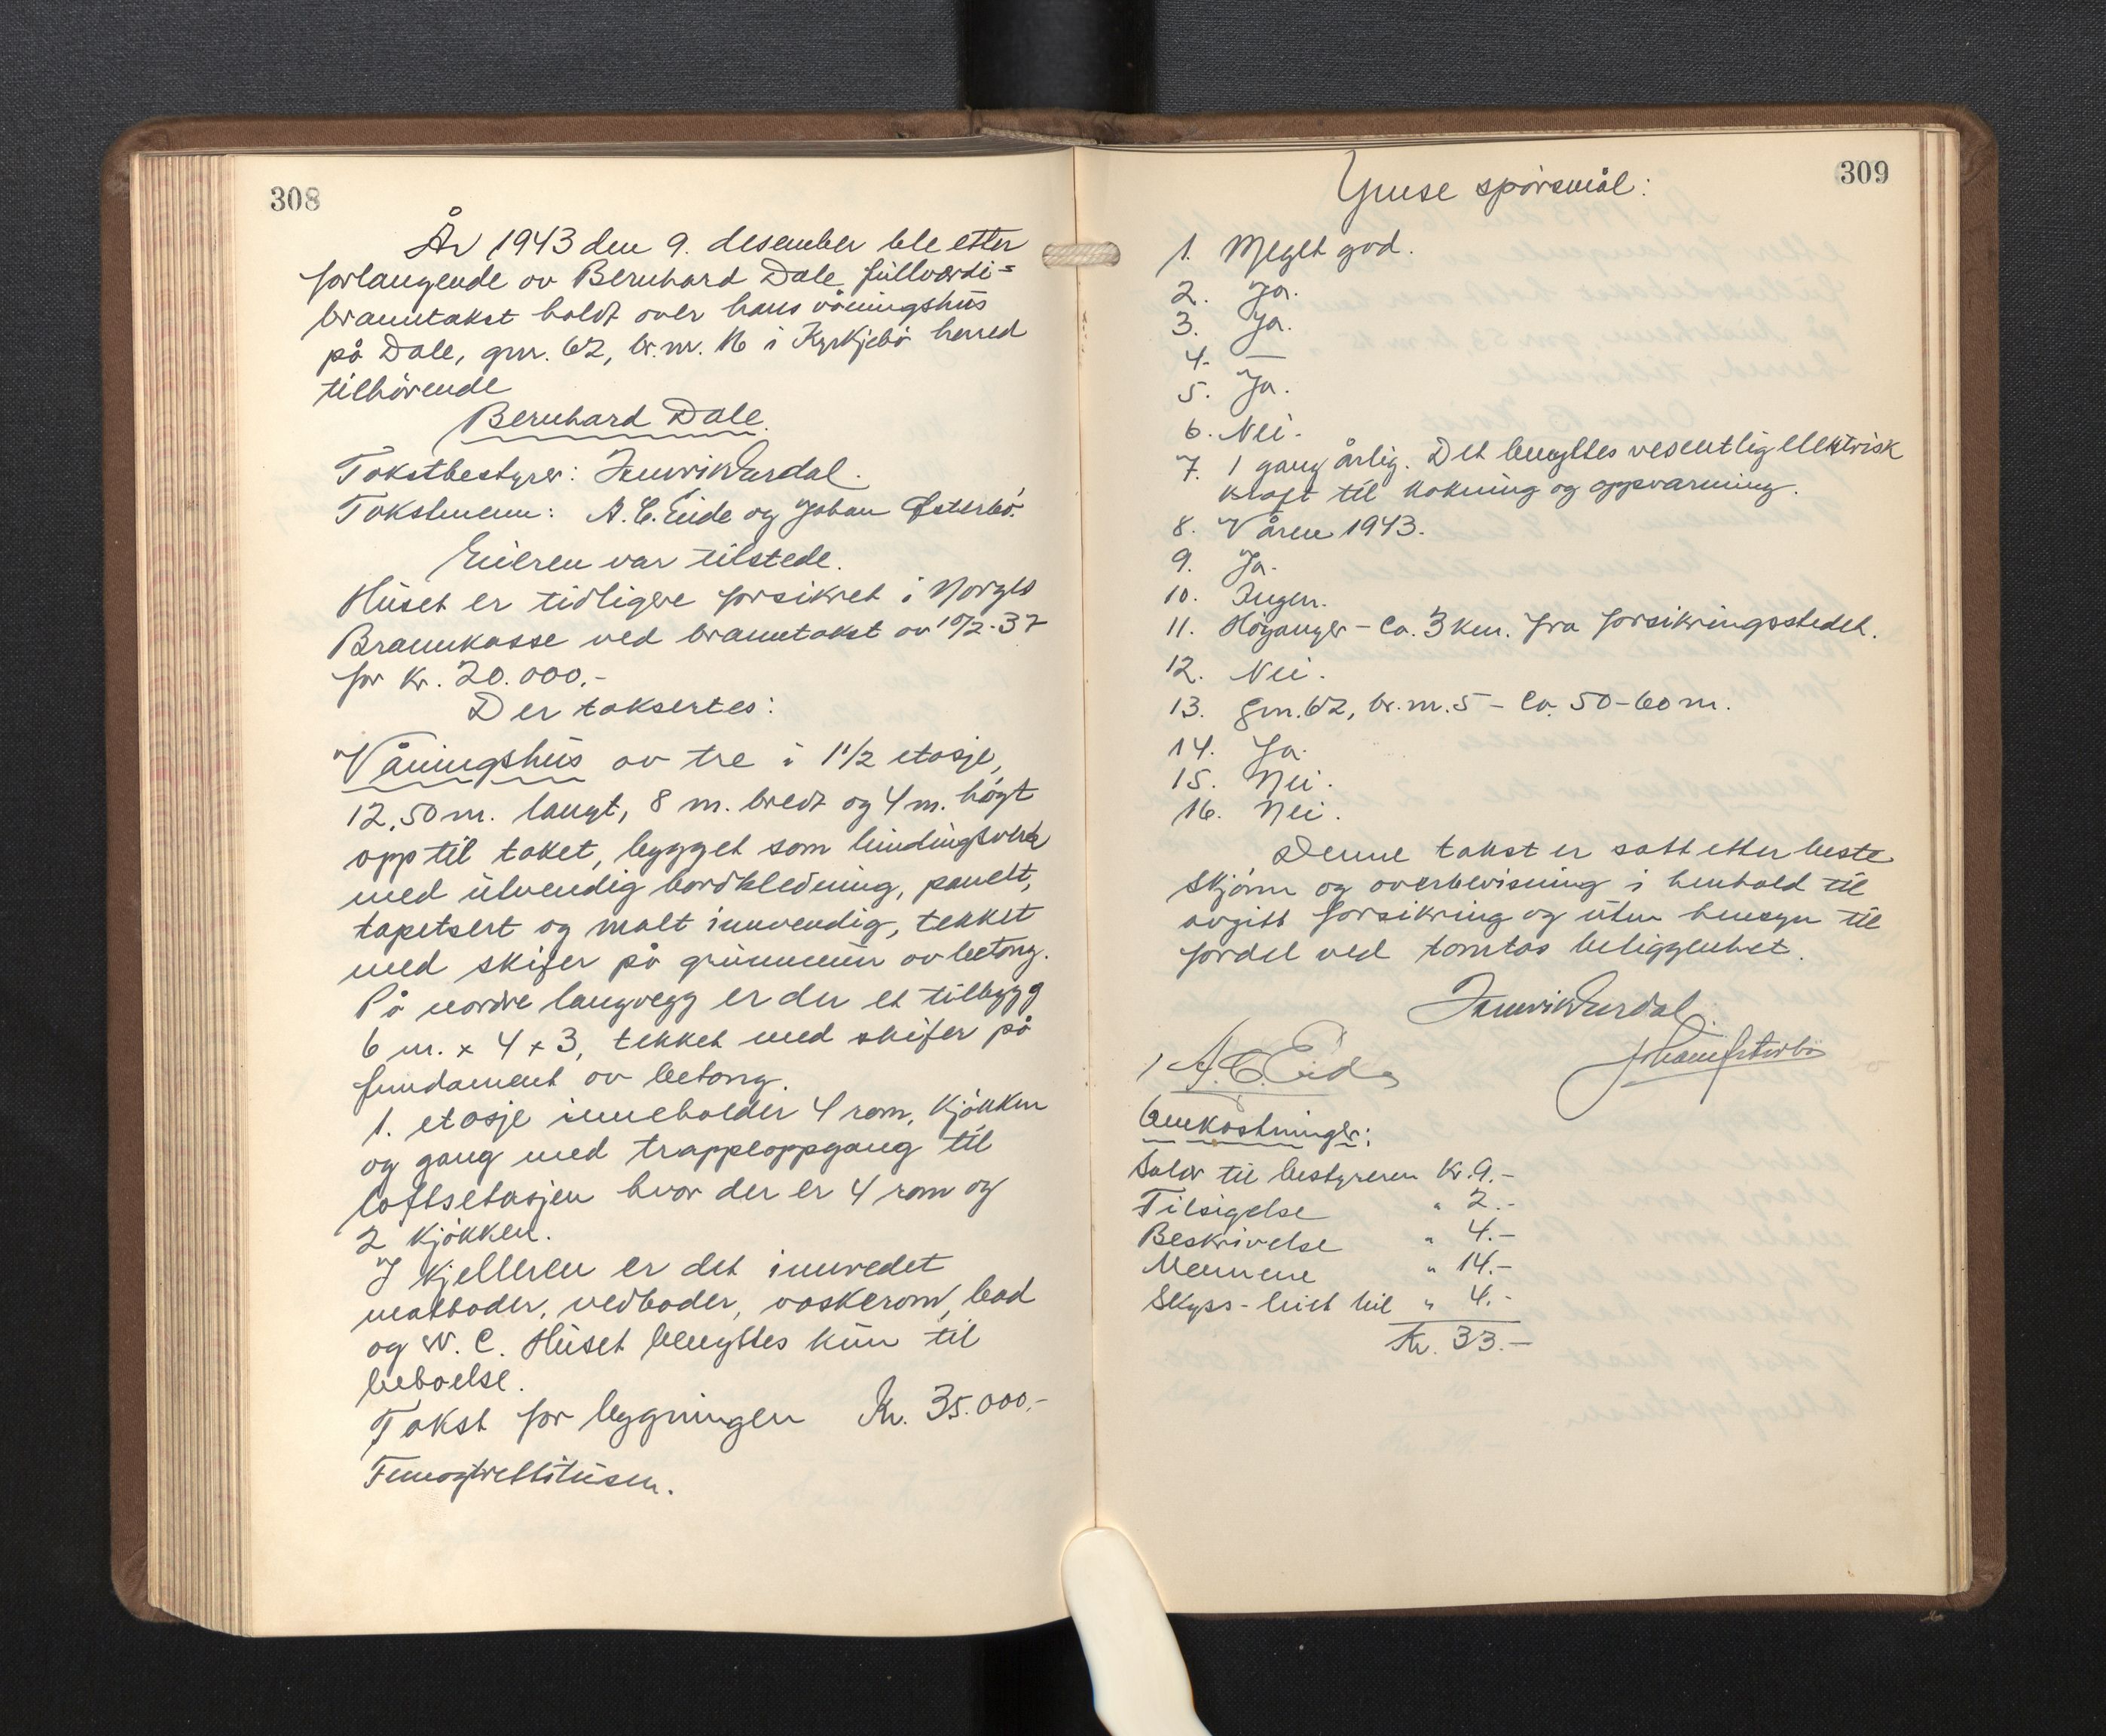 308
År 1943 den 9. desember ble etter
forlangende av Bernhard Dale fullverdi=
branntakst holdt over hans våningshus
på Dale, gnr. 62, br.nr. 16 i Kyrkjebø herred
tilhørende
Bernhard Dale.
Takstbestyrer: Henrik Verdal.
Takstmenn: A. C. Eide og Johan Østerbø.
Eieren var tilstede.
Huset er tidligere forsikret i Norges
Brannkasse ved branntakst av 10/2-37
for kr. 20.000.-
Der taksertes:
Våningshus av tre i 1 1/2 etasje,
12,50 m. langt, 8 m. bredt og 4 m. høgt
opp til taket, bygget som bindingsverk
med utvendig bordkledning, panelt,
tapetsert og malt innvendig, tekket
med skifer på grunnmur av betong.
På nordre langvegg er der et tilbygg
6 m. x 4 x 3, tekket med skifer på
fundament av betong.
1. etasje inneholder 4 rom, kjøkken
og gang med trappeoppgang til
loftsetasjen hvor der er 4 rom og
2 kjøkken.
I kjelleren er det innredet
matboder, vedboder, vaskerom, bad
og W. C. Huset benyttes kun til
beboelse.
Takst for bygningen Kr. 35.000.-
Femogtrettitusen.
309
Ymse spørsmål:
1. Meget god.
2. Ja.
3. Ja.
4. —
5. Ja.
6. Nei.
7. 1 gang årlig. Det benyttes vesentlig elektrisk
kraft til kokning og oppvarming.
8. Våren 1943.
9. Ja.
10. Ingen.
11. Høyanger - Ca. 3 km. fra forsikringsstedet.
12. Nei.
13. gnr. 62, br.nr. 5 - Ca. 50-60 m.
14. Ja.
15. Nei.
16. Nei.
Denne takst er satt etter beste
skjønn og overbevisning i henhold til
avgitt forsikring og uten hensyn til
fordel ved tomtas beliggenhet.
Henrik Verdal.
A. C. Eide Johan Østerbø
Omkostninger:
Salær til bestyreren Kr. 9.-
Tilsigelse " 2.-
Beskrivelse " 4.-
Mennene " 14.-
Skyss - leiet bil " 4.-
Kr. 33.-